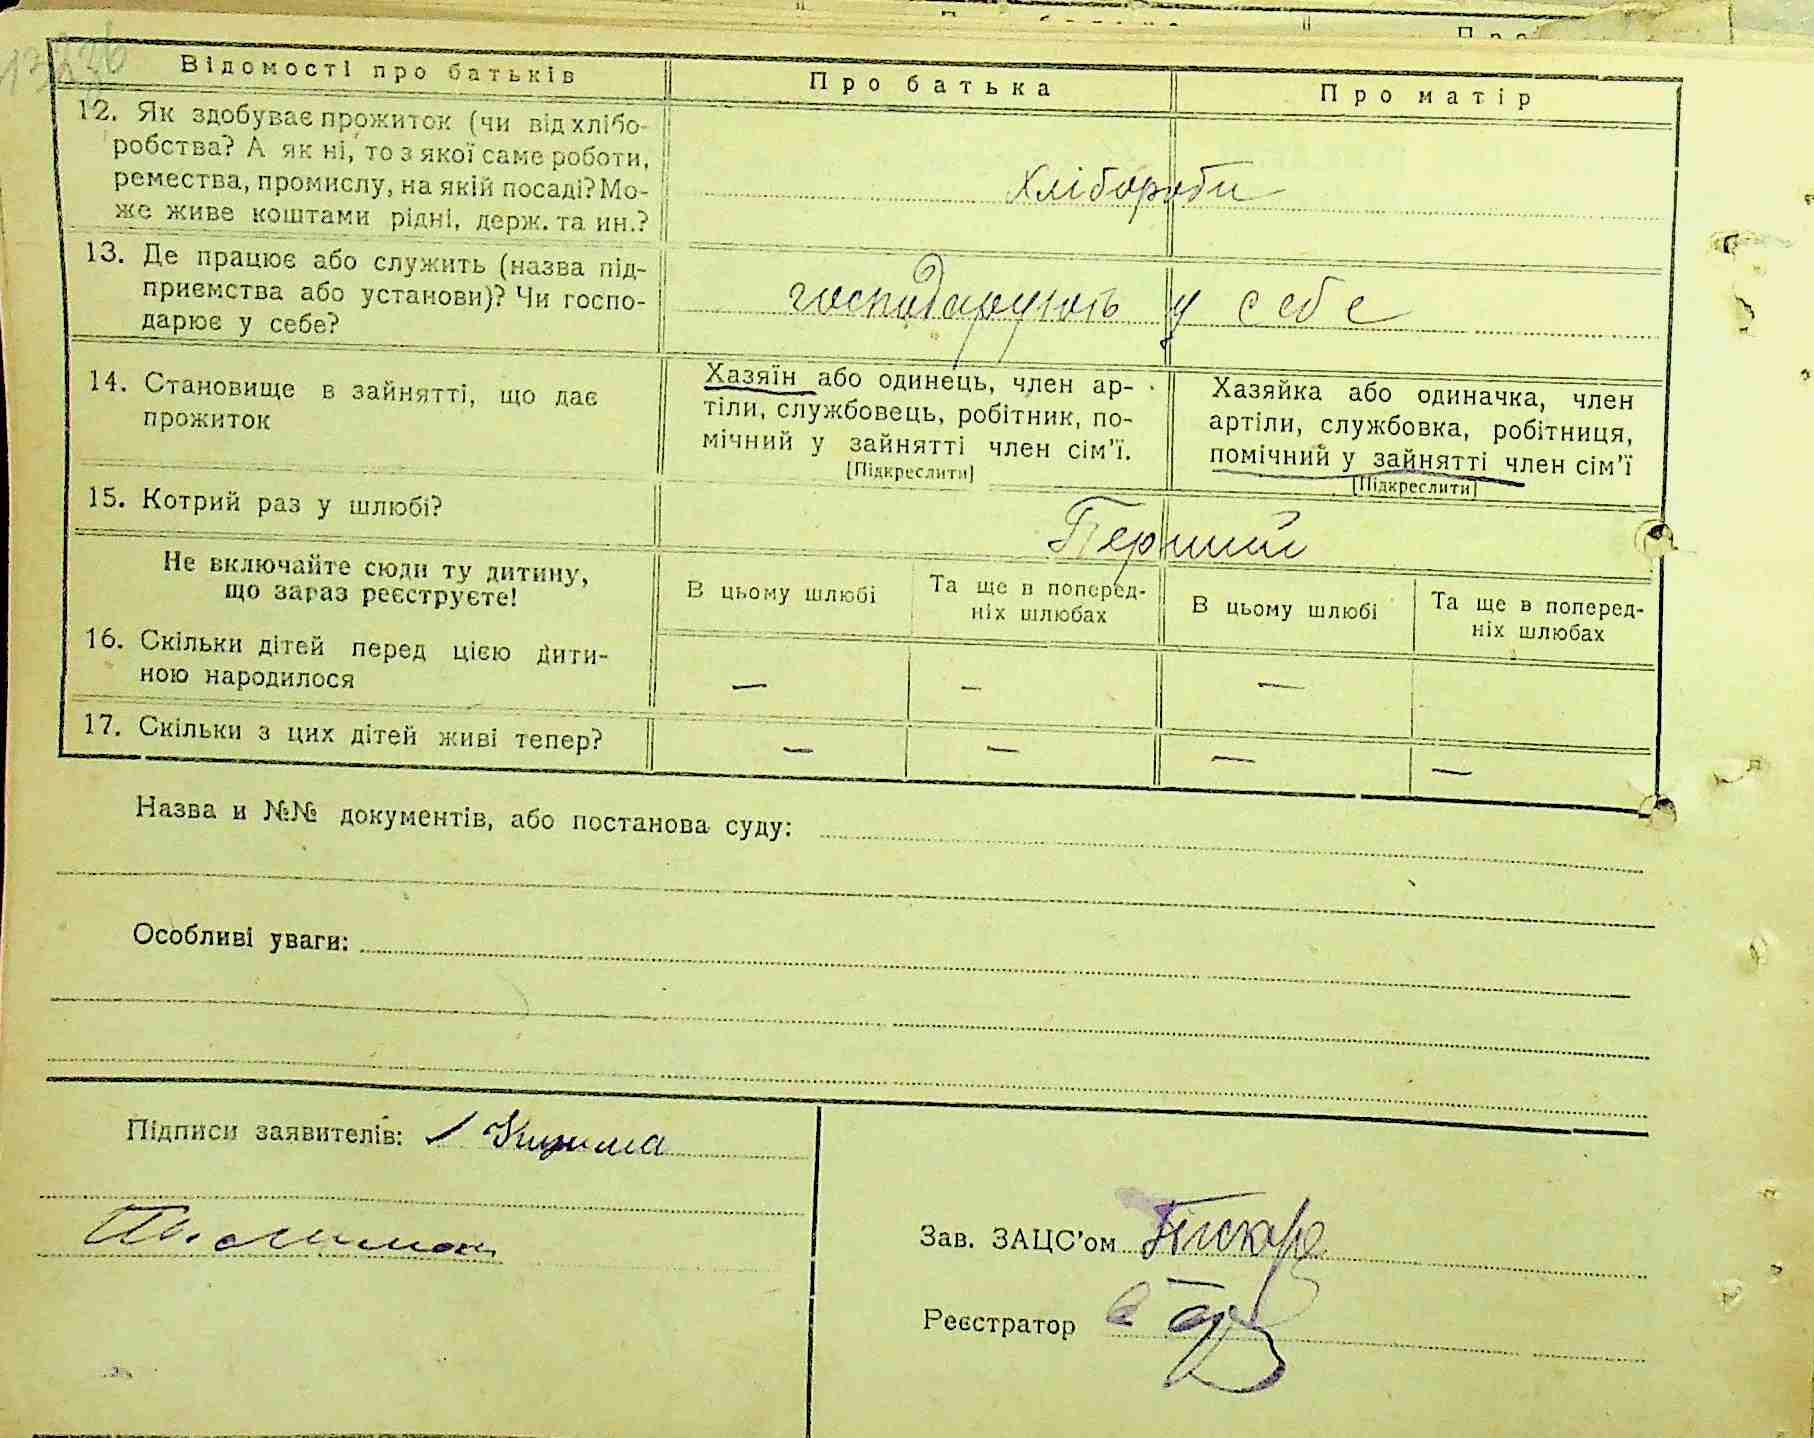 Відомості про батьків
Про батька
Про матір
12. Як здобуває прожиток (чи від хлібо-
робства? А як ні, то з якої саме роботи,
ремества, промислу, на якій посаді? Мо-
же живе коштами рідні, держ. та ин.?
хлібороби
13. Де працює або служить (назва під-
приємства або установи)? Чи госпо-
дарює у себе?
господарують у себе
14. Становище в зайнятті, що дає
прожиток
Хазяїн або одинець, член ар-
тіли, службовець, робітник, по-
мічний у зайнятті член сім'ї.
[Підкреслити]
Хазяйка або одиначка, член
артіли, службовка, робітниця,
помічний у зайнятті член сім'ї
[Підкреслити]
15. Котрий раз у шлюбі?
Перший
Не включайте сюди ту дитину,
що зараз реєструєте!
В цьому шлюбі
Та ще в поперед-
ніх шлюбах
В цьому шлюбі
Та ще в поперед-
ніх шлюбах
16. Скільки дітей перед цією дити-
ною народилося
— — —
17. Скільки з цих дітей живі тепер?
— — — —
Назва и №№ документів, або постанова суду:
Особливі уваги:
Підписи заявителів:
Зав. ЗАЦС'ом
Реєстратор